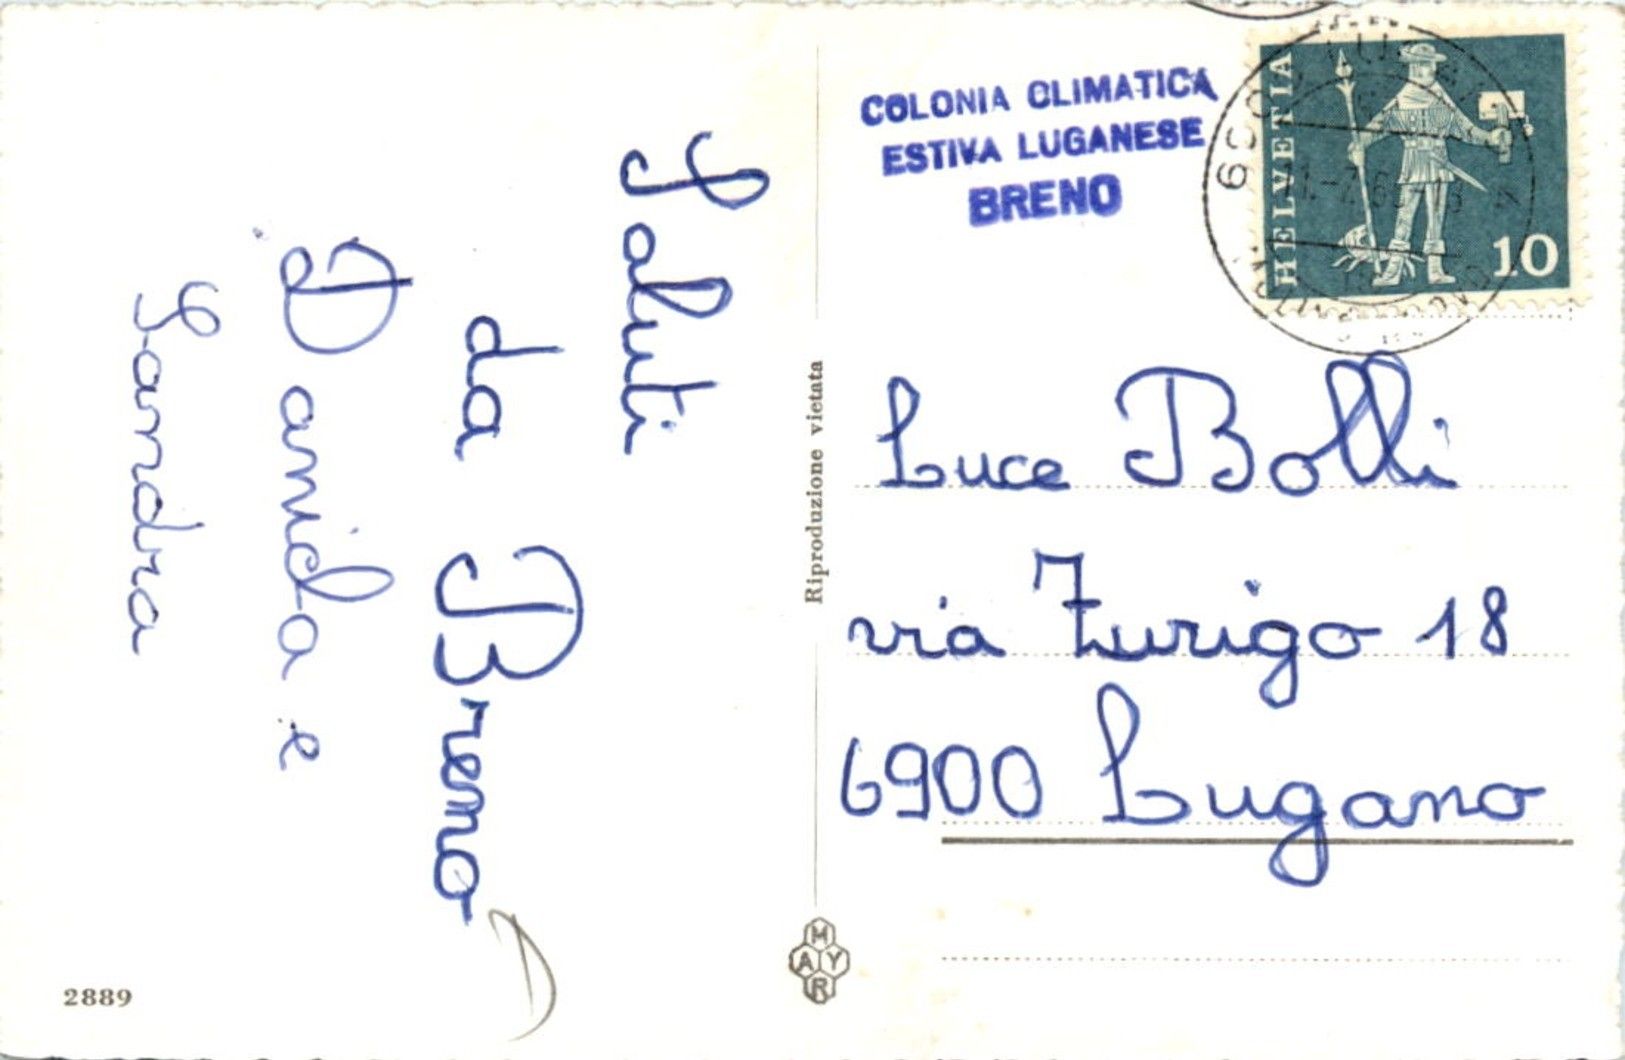 Saluti
da Breno
Daniela e
Sandra
2889
Riproduzione vietata
MAYR
COLONIA CLIMATICA
ESTIVA LUGANESE
BRENO
HELVETIA
10
Luce Bolli
via Zurigo 18
6900 Lugano